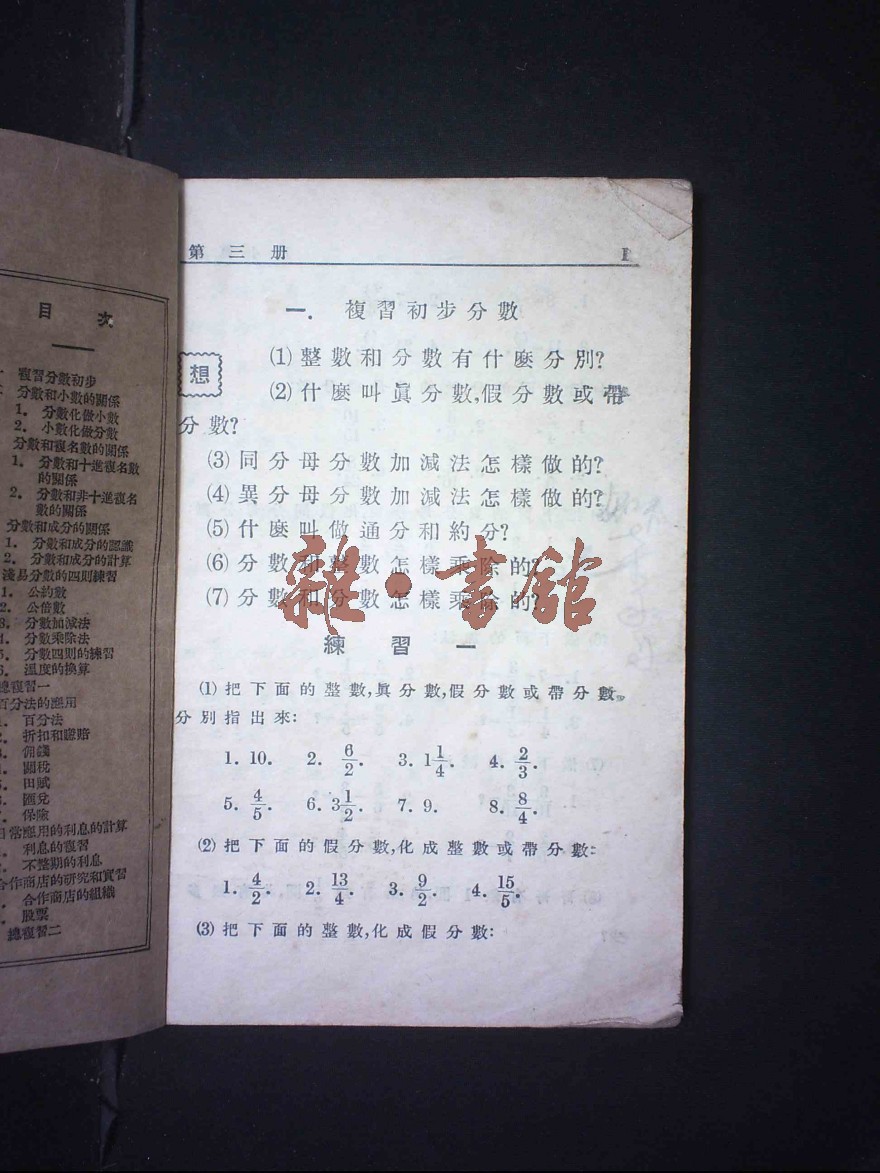 目 次
複習分數初步
分數和小數的關係
1. 分數化做小數
2. 小數化做分數
分數和複名數的關係
1. 分數和十進複名數
的關係
2. 分數和非十進複名
數的關係
分數和成分的關係
1. 分數和成分的認識
2. 分數和成分的計算
淺易分數的四則練習
1. 公約數
2. 公倍數
3. 分數加減法
4. 分數乘除法
5. 分數四則的練習
6. 溫度的換算
總複習一
百分法的應用
百分法
折扣和賺賠
佣錢
關稅
田賦
匯兌
保險
日常應用的利息的計算
利息的複習
不整期的利息
合作商店的研究和實習
合作商店的組織
股票
總複習二
第 三 冊 1
一. 複習初步分數
想
(1) 整數和分數有什麼分別?
(2) 什麼叫眞分數,假分數或帶
分數?
(3) 同分母分數加減法怎樣做的?
(4) 異分母分數加減法怎樣做的?
(5) 什麼叫做通分和約分?
(6) 分數和整數怎樣乘除的?
(7) 分數和分數怎樣乘除的?
雜·書館
練 習 一
(1) 把下面的整數,眞分數,假分數或帶分數,
分別指出來:
1. 10. 2. 6/2. 3. 1 1/4. 4. 2/3.
5. 4/5. 6. 3 1/2. 7. 9. 8. 8/4.
(2) 把下面的假分數,化成整數或帶分數:
1. 4/2. 2. 13/4. 3. 9/2. 4. 15/5.
(3) 把下面的整數,化成假分數: